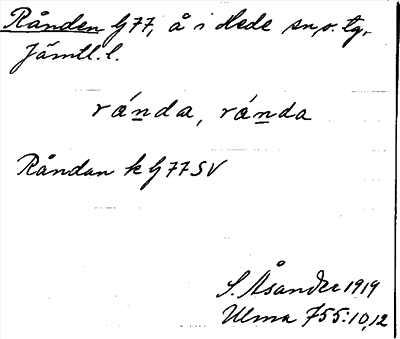 Rånden G 77, å i Hede sn o. tg.
Jämtl. l.
rǻnda, rǻnda
Råndan k G 77 SV
S. Åsander 1919
Ulma 755:10,12